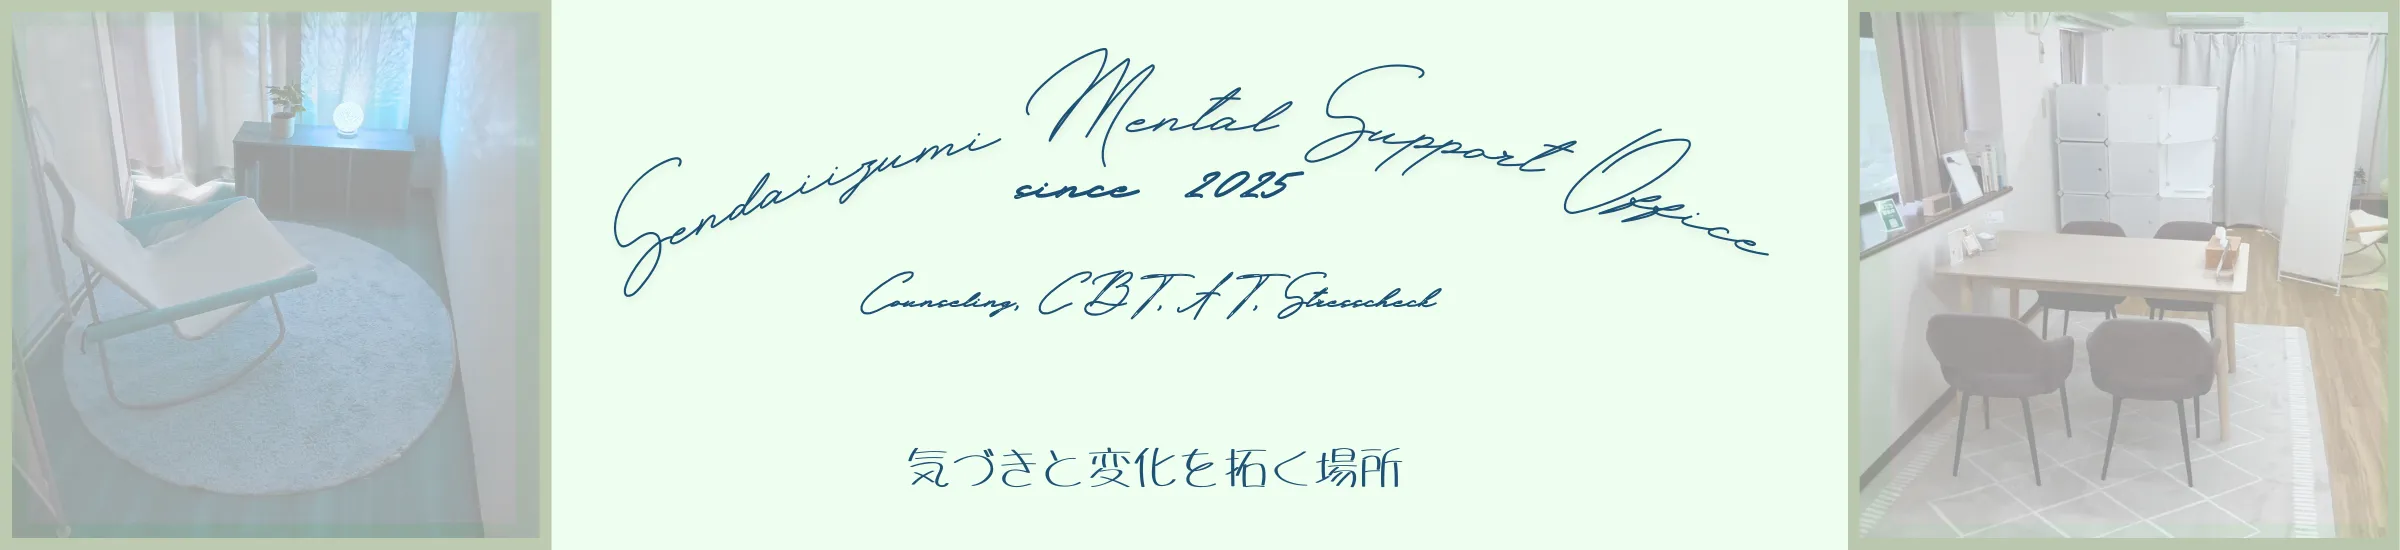 Sendaiizumi Mental Support Office
since 2025
Counseling, CBT, AT, Stresscheck
気づきと変化を拓く場所